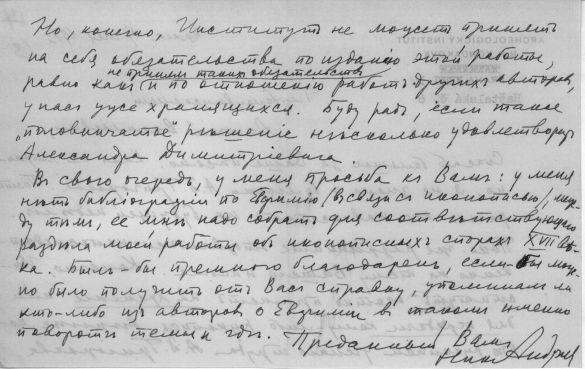 Но, конечно, Институтъ не можетъ принять
на себя обязательства по изданію этой работы,
не принялъ такихъ обязательствъ
равно какъ и по отношенію работъ другихъ авторовъ,
у насъ уже хранящихся. Буду радъ, если такое
"половинчатое" рѣшеніе нѣсколько удовлетворитъ
Александра Димитріевича.
Въ свою очередь, у меня просьба къ Вамъ: у меня
нѣтъ библіографіи по Евфимію (въ связи съ иконописью), меж-
ду тѣмъ, ее мнѣ надо собрать для соотвѣтствующаго
раздѣла моей работы объ иконописныхъ спорахъ XVII вѣ-
ка. Былъ-бы премного благодаренъ, если-бы мож-
но было получить отъ Васъ справку, упоминалъ ли
кто-либо изъ авторовъ о Евфиміи въ такомъ именно
поворотѣ темы и гдѣ. Преданный Вамъ
Ник. Андреев
ARCHEOLOGICKÝ INSTITUT